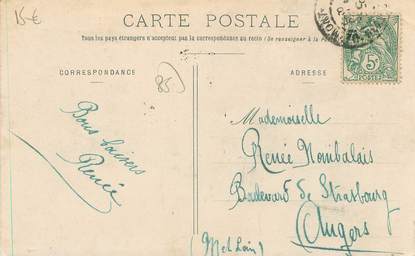 15-€
CARTE POSTALE
Tous les pays étrangers n'acceptent pas la correspondance au recto (Se renseigner à la
CORRESPONDANCE
ADRESSE
85
5c
POSTES
Bons baisers
Renée
Mademoiselle
Renée Nombalais
Boulevard de Strasbourg
Angers
(M et Loire)